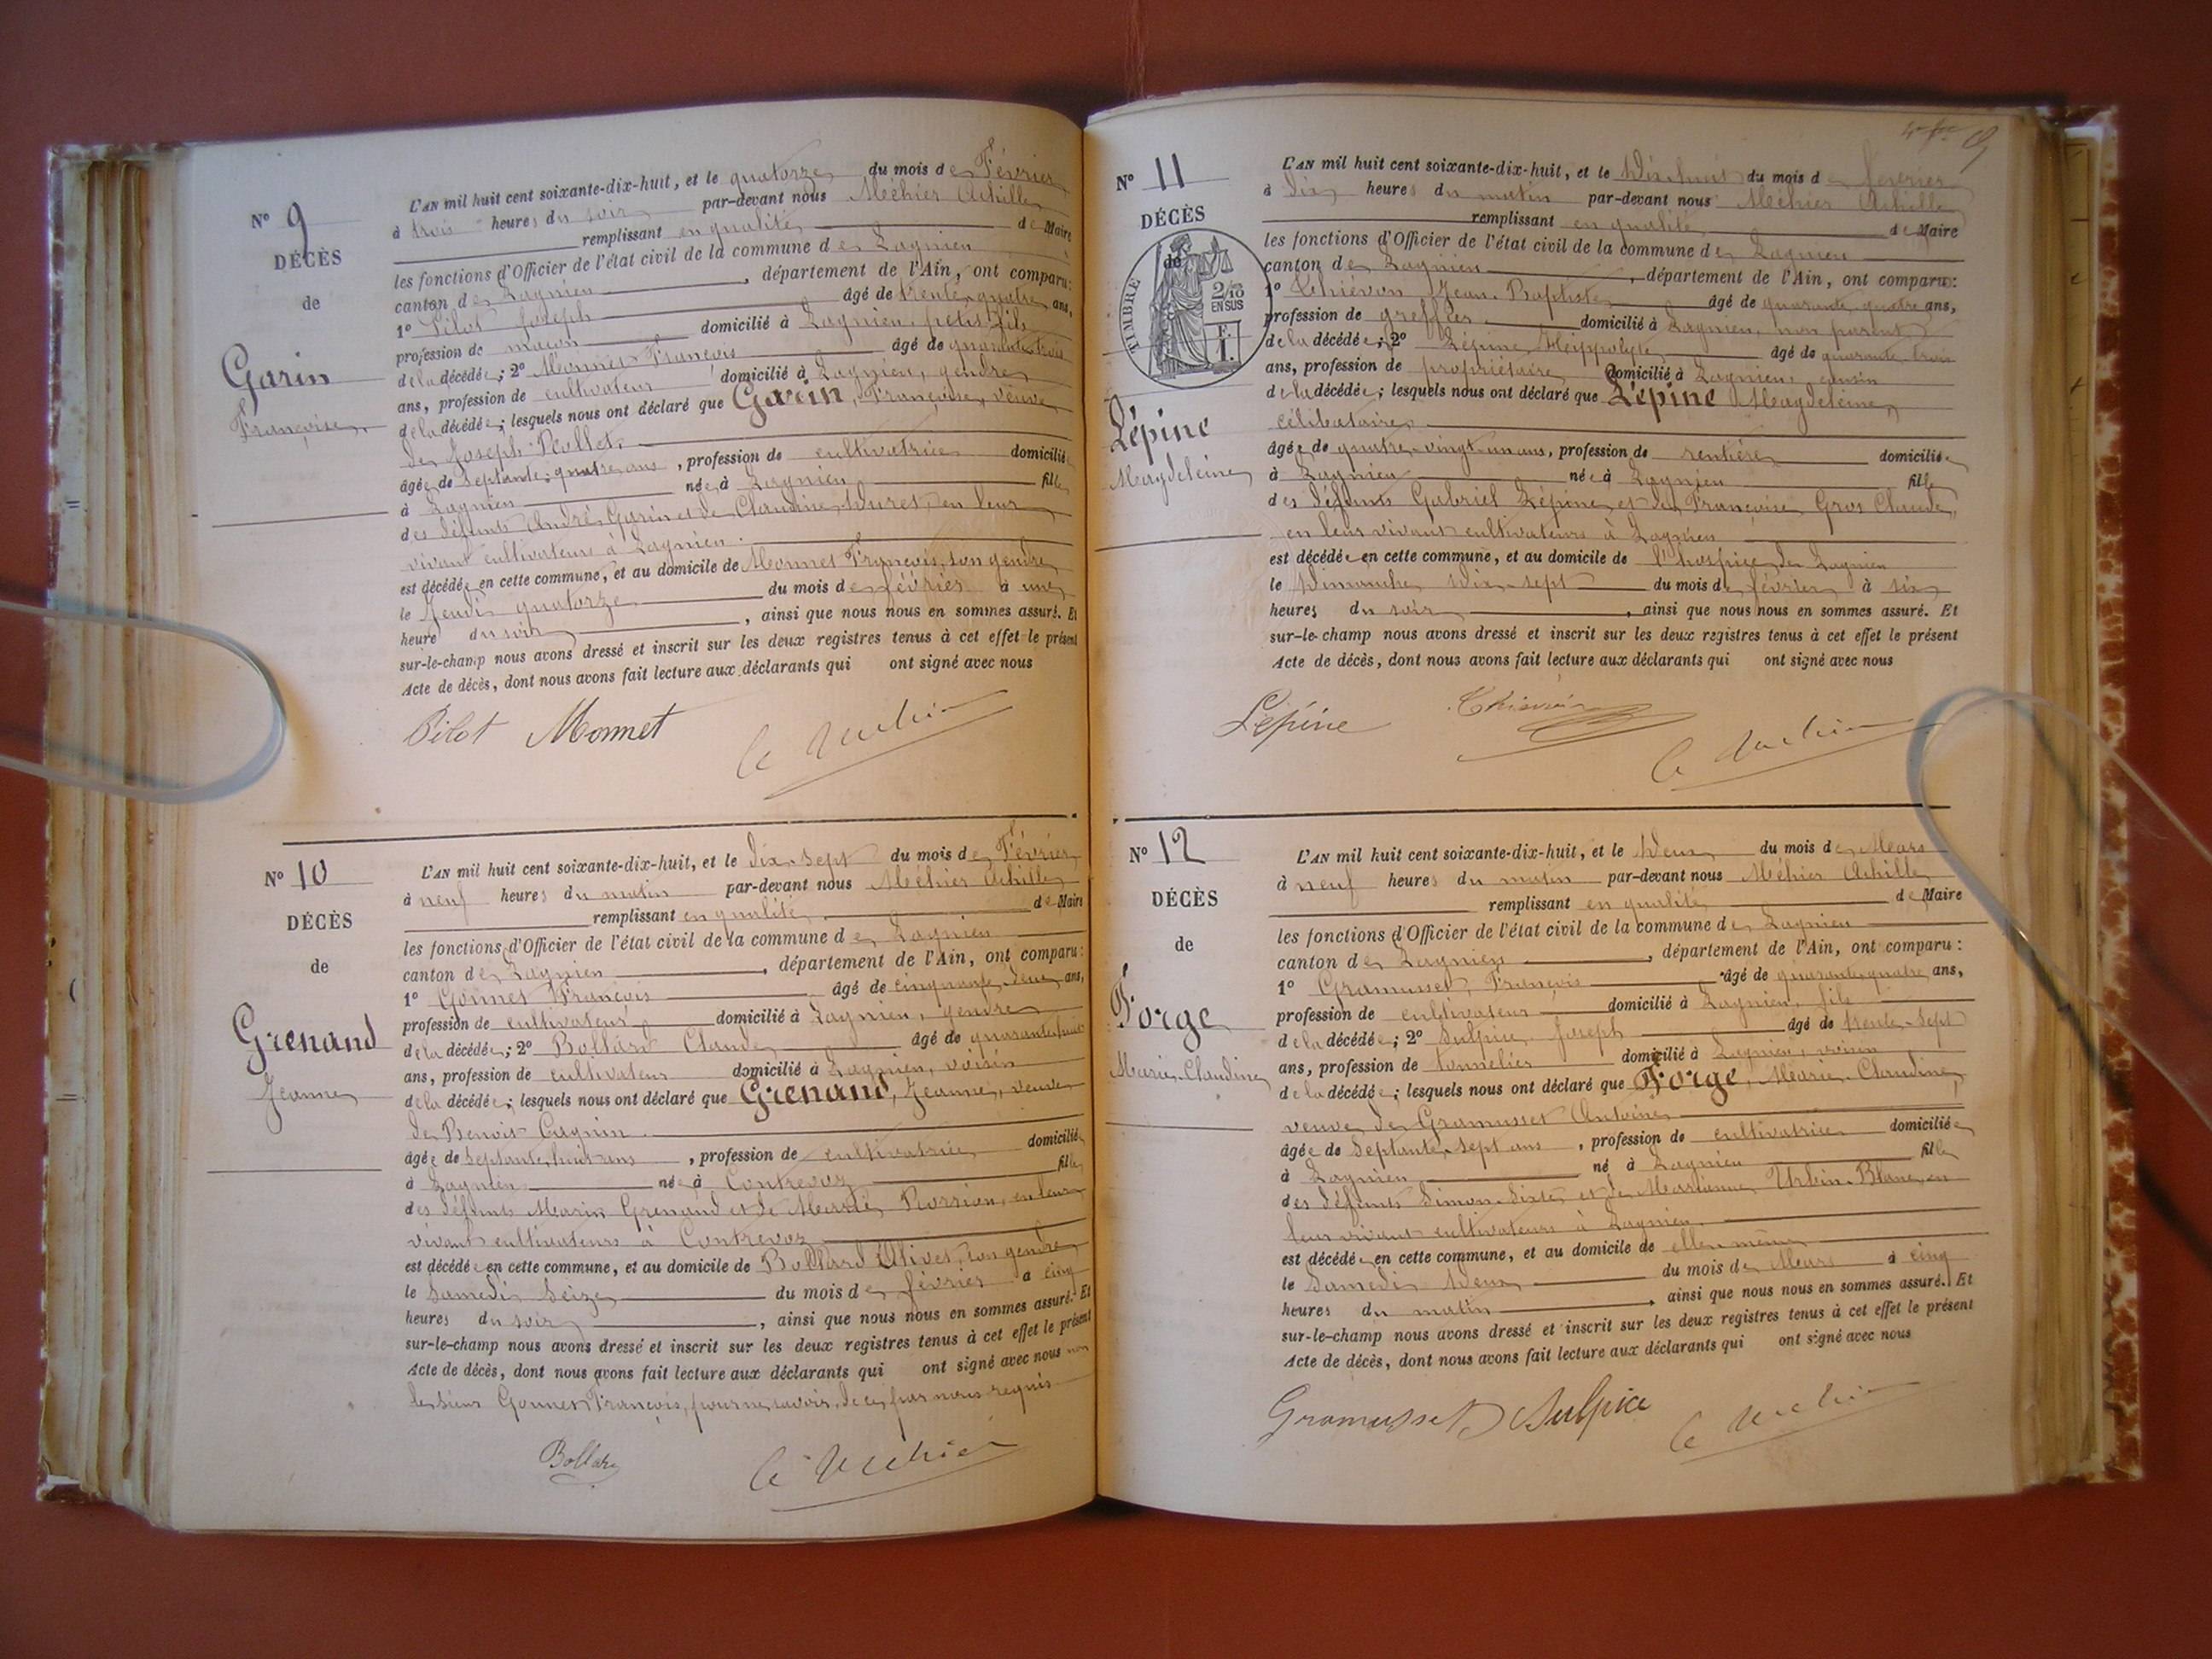 N° 9
DÉCÈS
de
Garin
Françoise
L'AN mil huit cent soixante-dix-huit, et le quatorze du mois de Février
à trois heures du soir par-devant nous Méhier Achille
remplissant en qualité de Maire
les fonctions d'Officier de l'état civil de la commune de Lagnieu
canton de Lagnieu, département de l'Ain, ont comparu:
1° Pilot Joseph âgé de trente-quatre ans,
profession de maçon domicilié à Lagnieu, petit fils
de la décédée; 2° Monnet François âgé de quarante trois
ans, profession de cultivateur domicilié à Lagnieu, gendre
de la décédée; lesquels nous ont déclaré que Garin, Françoise, veuve
de Joseph
âgée de septante-quatre ans, profession de cultivatrice domiciliée
à Lagnieu née à Lagnieu fille
des défunts André Garin et de Claudine Duret, en leur
vivant cultivateurs à Lagnieu.
est décédée en cette commune, et au domicile de Monnet François, son gendre
le Jeudi quatorze du mois de février à une
heure du soir, ainsi que nous nous en sommes assuré. Et
sur-le-champ nous avons dressé et inscrit sur les deux registres tenus à cet effet le présent
Acte de décès, dont nous avons fait lecture aux déclarants qui ont signé avec nous
Pilot Monnet
N° 10
DÉCÈS
de
Grenand
Jeanne
L'AN mil huit cent soixante-dix-huit, et le dix-sept du mois de Février
à neuf heures du matin par-devant nous Méhier Achille
remplissant en qualité de Maire
les fonctions d'Officier de l'état civil de la commune de Lagnieu
canton de Lagnieu, département de l'Ain, ont comparu:
1° Gonnet François âgé de cinquante-deux ans,
profession de cultivateur domicilié à Lagnieu, gendre
de la décédée; 2° Bollard Claude âgé de quarante huit
ans, profession de cultivateur domicilié à Lagnieu, voisin
de la décédée; lesquels nous ont déclaré que Grenand, Jeanne, veuve
de Benoit Cagnin
âgée de septante huit ans, profession de cultivatrice domiciliée
à Lagnieu née à Contrevoz fille
des défunts Marin Grenand et de Marie en leur
vivant cultivateurs à Contrevoz
est décédée en cette commune, et au domicile de Bollard son gendre
le samedi seize du mois de février à cinq
heures du soir, ainsi que nous nous en sommes assuré. Et
sur-le-champ nous avons dressé et inscrit sur les deux registres tenus à cet effet le présent
Acte de décès, dont nous avons fait lecture aux déclarants qui ont signé avec nous non
le sieur Gonnet François, pour ne savoir, de ce par nous requis
Bollard
N° 11
DÉCÈS
de
TIMBRE
2/10
EN SUS
F.
1.
Lépine
Magdeleine
L'AN mil huit cent soixante-dix-huit, et le Dix-huit du mois de février
à dix heures du matin par-devant nous Méhier Achille
remplissant en qualité de Maire
les fonctions d'Officier de l'état civil de la commune de Lagnieu
canton de Lagnieu, département de l'Ain, ont comparu:
1° Thiévon Jean-Baptiste âgé de quarante-quatre ans,
profession de greffier domicilié à Lagnieu, non parent
de la décédée; 2° Lépine Hyppolyte âgé de quarante trois
ans, profession de propriétaire domicilié à Lagnieu, cousin
de la décédée; lesquels nous ont déclaré que Lépine Magdeleine,
célibataire
âgée de quatre-vingt-un ans, profession de rentière domiciliée
à Lagnieu née à Lagnieu fille
des défunts Gabriel Lépine et de Françoise Gros Claude,
en leur vivant cultivateurs à Lagnieu
est décédée en cette commune, et au domicile de l'hospice de Lagnieu
le Dimanche dix-sept du mois de février à six
heures du soir, ainsi que nous nous en sommes assuré. Et
sur-le-champ nous avons dressé et inscrit sur les deux registres tenus à cet effet le présent
Acte de décès, dont nous avons fait lecture aux déclarants qui ont signé avec nous
Lépine Thiévon
N° 12
DÉCÈS
de
Forge
Marie-Claudine
L'AN mil huit cent soixante-dix-huit, et le Deux du mois de Mars
à neuf heures du matin par-devant nous Méhier Achille
remplissant en qualité de Maire
les fonctions d'Officier de l'état civil de la commune de Lagnieu
canton de Lagnieu, département de l'Ain, ont comparu:
1° Gramusset, François âgé de quarante-quatre ans,
profession de cultivateur domicilié à Lagnieu, fils
de la décédée; 2° Sulpice Joseph âgé de trente-sept
ans, profession de tonnelier domicilié à Lagnieu, voisin
de la décédée; lesquels nous ont déclaré que Forge, Marie-Claudine,
veuve de Gramusset Antoine
âgée de septante-sept ans, profession de cultivatrice domiciliée
à Lagnieu né à Lagnieu fille
des défunts Simon Sixte et de Marianne Urbin-Blanc, en
leur vivant cultivateurs à Lagnieu.
est décédée en cette commune, et au domicile de elle même
le Samedi Deux du mois de Mars à cinq
heures du matin, ainsi que nous nous en sommes assuré. Et
sur-le-champ nous avons dressé et inscrit sur les deux registres tenus à cet effet le présent
Acte de décès, dont nous avons fait lecture aux déclarants qui ont signé avec nous
Gramusset Sulpice